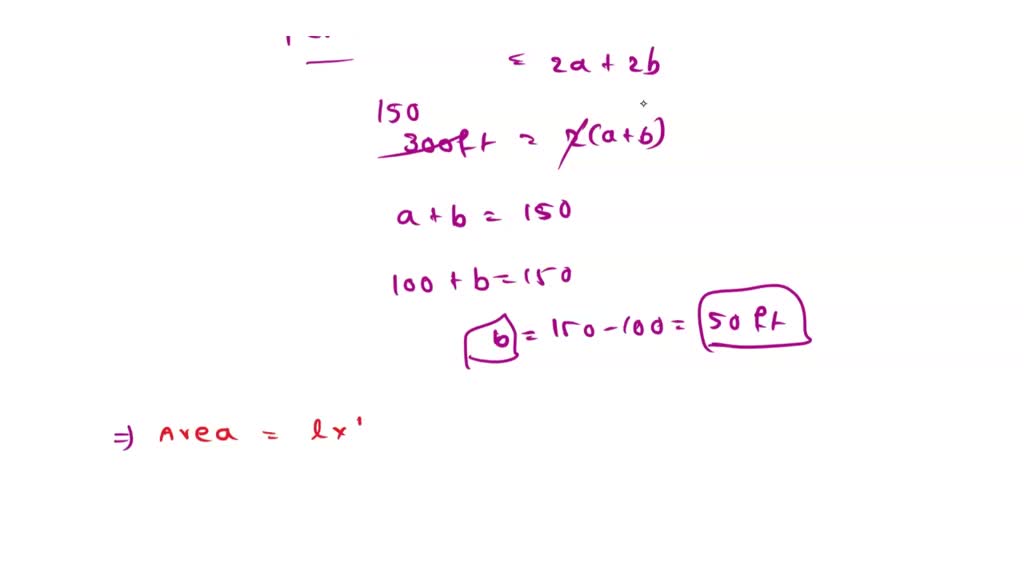 = 2a + 2b
150
300ft = 2(a+b)
a + b = 150
100 + b = 150
b = 150 - 100 = 50 ft
⇒ Area = l x